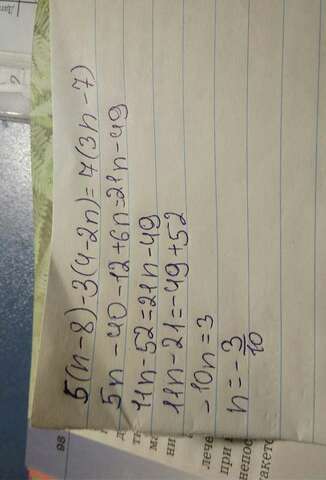 5(n-8)-3(4-2n)=7(3n-7)
5n-40-12+6n=21n-49
11n-52=21n-49
11n-21=-49+52
-10n=3
n=-3/10
98
лече
при
непос
такето